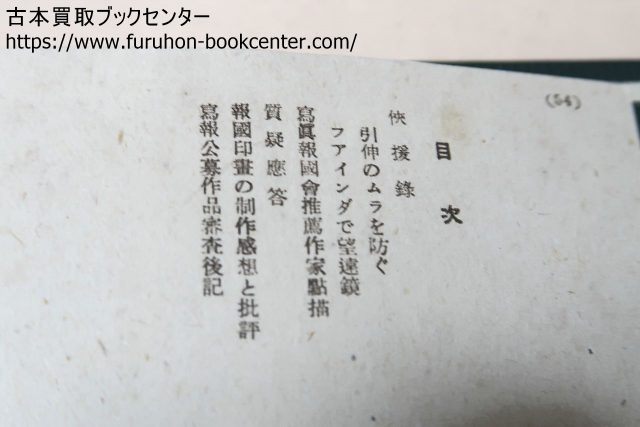 古本買取ブックセンター
https://www.furuhon-bookcenter.com/
(54)
目次
侠援錄
引伸のムラを防ぐ
フアインダで望遠鏡
寫眞報國會推薦作家點描
質疑應答
報國印畫の制作感想と批評
寫報公募作品審査後記